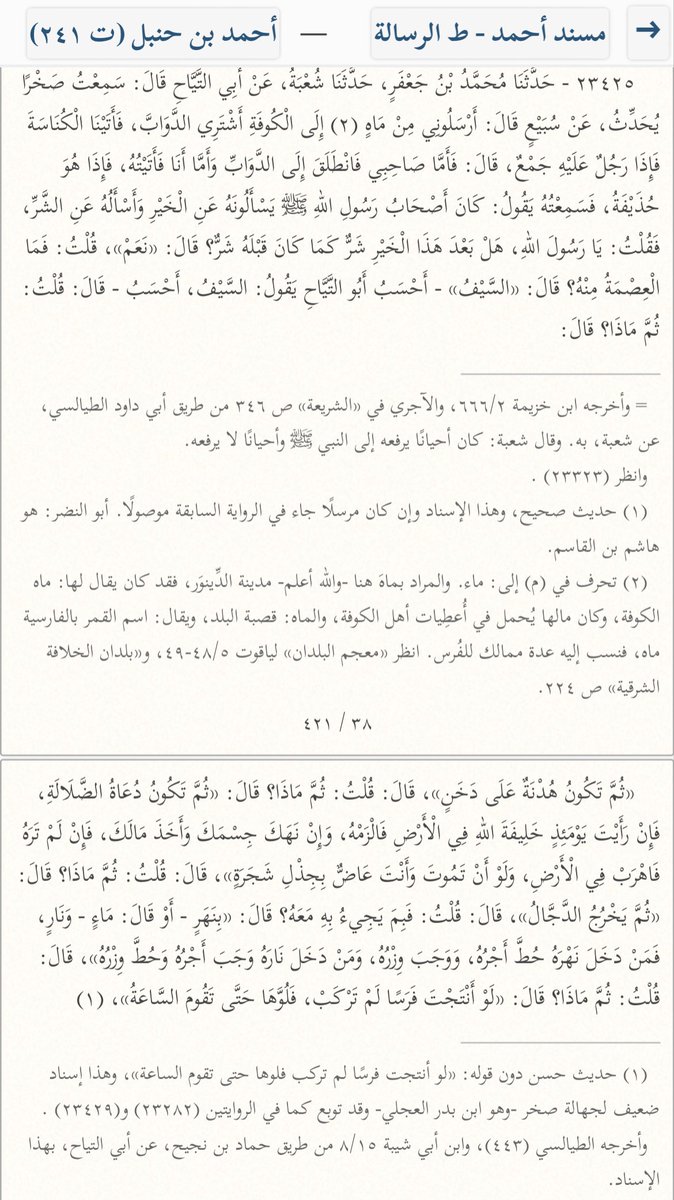 مسند أحمد - ط الرسالة — أحمد بن حنبل (ت ٢٤١)
٢٣٤٢٥ - حَدَّثَنَا مُحَمَّدُ بْنُ جَعْفَرٍ، حَدَّثَنَا شُعْبَةُ، عَنْ أَبِي التَّيَّاحِ قَالَ: سَمِعْتُ صَخْرًا
يُحَدِّثُ، عَنْ سُبَيْعٍ قَالَ: أَرْسَلُونِي مِنْ مَاهٍ (٢) إِلَى الْكُوفَةِ أَشْتَرِي الدَّوَابَّ، فَأَتَيْنَا الْكُنَاسَةَ
فَإِذَا رَجُلٌ عَلَيْهِ جَمْعٌ، قَالَ: فَأَمَّا صَاحِبِي فَانْطَلَقَ إِلَى الدَّوَابِّ وَأَمَّا أَنَا فَأَتَيْتُهُ، فَإِذَا هُوَ
حُذَيْفَةُ، فَسَمِعْتُهُ يَقُولُ: كَانَ أَصْحَابُ رَسُولِ اللهِ ﷺ يَسْأَلُونَهُ عَنِ الْخَيْرِ وَأَسْأَلُهُ عَنِ الشَّرِّ،
فَقُلْتُ: يَا رَسُولَ اللهِ، هَلْ بَعْدَ هَذَا الْخَيْرِ شَرٌّ كَمَا كَانَ قَبْلَهُ شَرٌّ؟ قَالَ: «نَعَمْ»، قُلْتُ: فَمَا
الْعِصْمَةُ مِنْهُ؟ قَالَ: «السَّيْفُ» - أَحْسَبُ أَبُو التَّيَّاحِ يَقُولُ: السَّيْفُ، أَحْسَبُ - قَالَ: قُلْتُ:
ثُمَّ مَاذَا؟ قَالَ:
= وأخرجه ابن خزيمة ٢/‏٦٦٦، والآجري في «الشريعة» ص ٣٤٦ من طريق أبي داود الطيالسي،
عن شعبة، به. وقال شعبة: كان أحيانًا يرفعه إلى النبي ﷺ وأحيانًا لا يرفعه.
وانظر (٢٣٣٢٣) .
(١) حديث صحيح، وهذا الإسناد وإن كان مرسلًا جاء في الرواية السابقة موصولًا. أبو النضر: هو
هاشم بن القاسم.
(٢) تحرف في (م) إلى: ماء. والمراد بماهَ هنا -والله أعلم- مدينة الدِّينوَر، فقد كان يقال لها: ماه
الكوفة، وكان مالها يُحمل في أُعطِيات أهل الكوفة، والماه: قصبة البلد، ويقال: اسم القمر بالفارسية
ماه، فنسب إليه عدة ممالك للفُرس. انظر «معجم البلدان» لياقوت ٥/‏٤٨-٤٩، و«بلدان الخلافة
الشرقية» ص ٢٢٤.
٣٨ / ٤٢١
«ثُمَّ تَكُونُ هُدْنَةٌ عَلَى دَخَنٍ»، قَالَ: قُلْتُ: ثُمَّ مَاذَا؟ قَالَ: «ثُمَّ تَكُونُ دُعَاةُ الضَّلَالَةِ،
فَإِنْ رَأَيْتَ يَوْمَئِذٍ خَلِيفَةَ اللهِ فِي الْأَرْضِ فَالْزَمْهُ، وَإِنْ نَهَكَ جِسْمَكَ وَأَخَذَ مَالَكَ، فَإِنْ لَمْ تَرَهُ
فَاهْرَبْ فِي الْأَرْضِ، وَلَوْ أَنْ تَمُوتَ وَأَنْتَ عَاضٌّ بِجِذْلِ شَجَرَةٍ»، قَالَ: قُلْتُ: ثُمَّ مَاذَا؟ قَالَ:
«ثُمَّ يَخْرُجُ الدَّجَّالُ»، قَالَ: قُلْتُ: فَبِمَ يَجِيءُ بِهِ مَعَهُ؟ قَالَ: «بِنَهَرٍ - أَوْ قَالَ: مَاءٍ - وَنَارٍ،
فَمَنْ دَخَلَ نَهْرَهُ حُطَّ أَجْرُهُ، وَوَجَبَ وِزْرُهُ، وَمَنْ دَخَلَ نَارَهُ وَجَبَ أَجْرُهُ وَحُطَّ وِزْرُهُ»، قَالَ:
قُلْتُ: ثُمَّ مَاذَا؟ قَالَ: «لَوْ أَنْتَجْتَ فَرَسًا لَمْ تَرْكَبْ، فَلُوَّهَا حَتَّى تَقُومَ السَّاعَةُ»، (١)
(١) حديث حسن دون قوله: «لو أنتجت فرسًا لم تركب فلوها حتى تقوم الساعة»، وهذا إسناد
ضعيف لجهالة صخر -وهو ابن بدر العجلي- وقد توبع كما في الروايتين (٢٣٢٨٢) و(٢٣٤٢٩) .
وأخرجه الطيالسي (٤٤٣)، وابن أبي شيبة ١٥/‏٨ من طريق حماد بن نجيح، عن أبي التياح، بهذا
الإسناد.